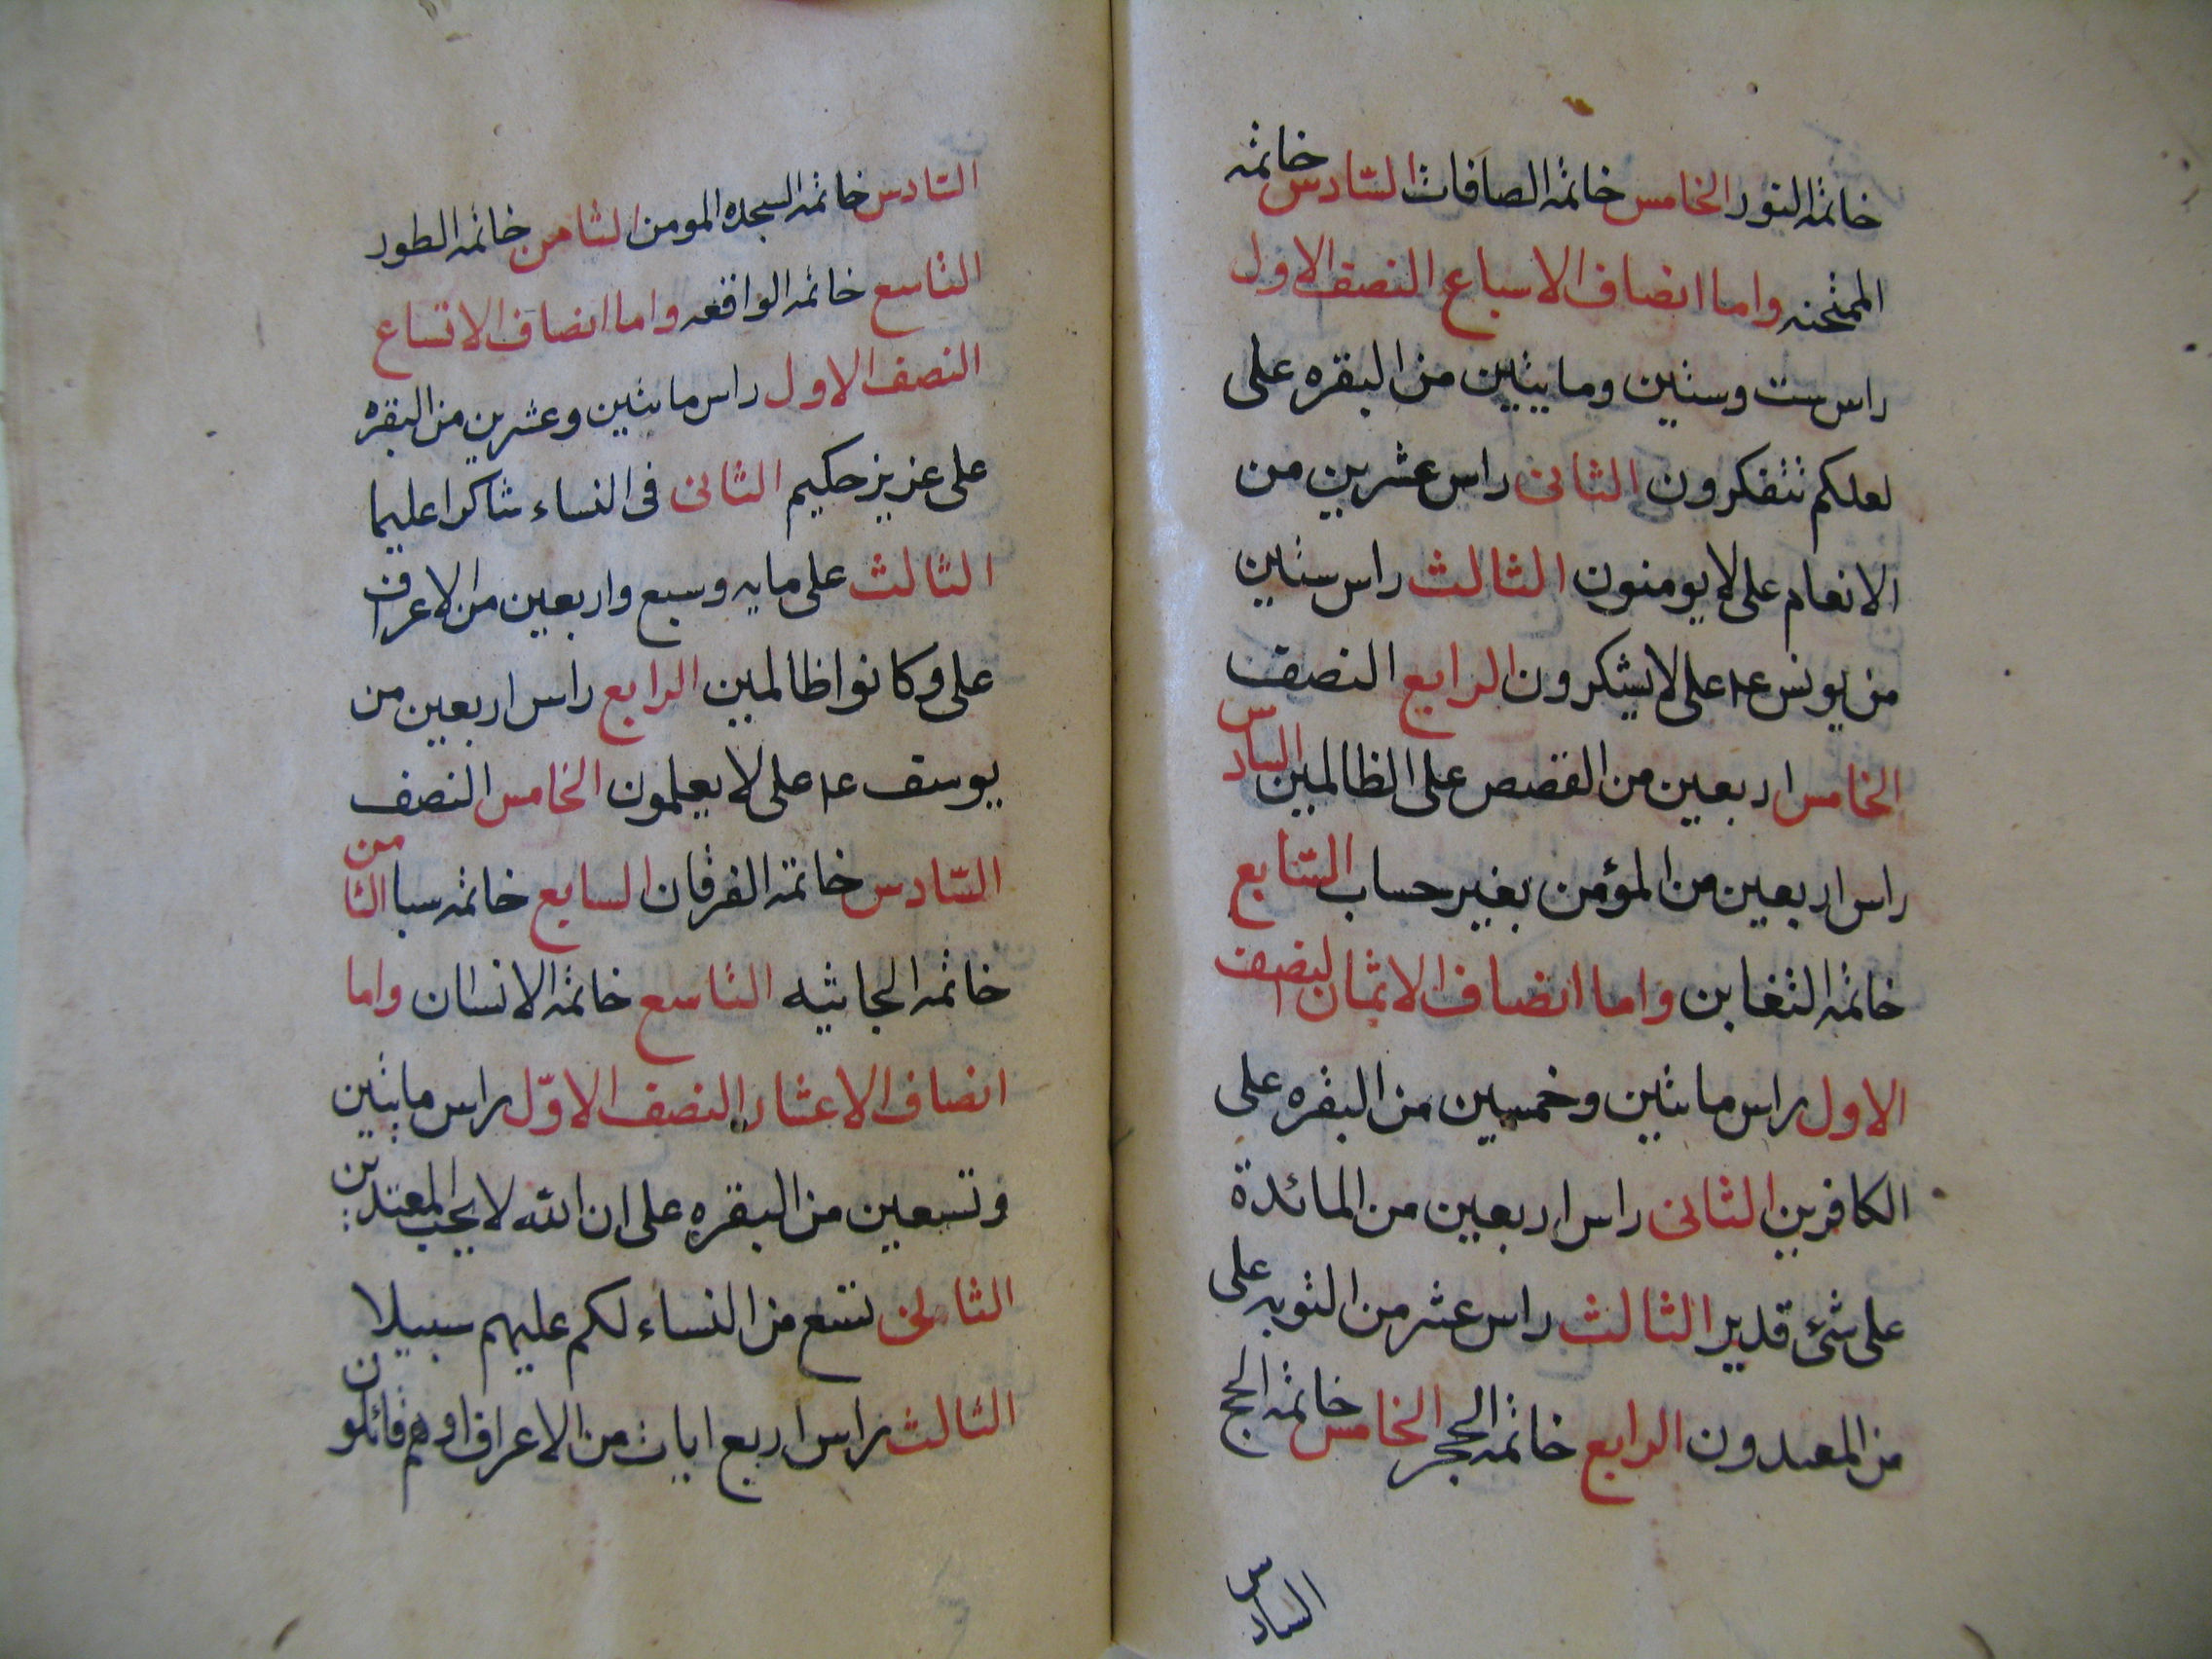 خاتمه النور الخامس خاتمه الصافات السّادس خاتمه
الممتحنه واما انصاف الاسباع النصف الاول
راس ست وستين ومايتين من البقره على
لعلكم تتفكرون الثانى راس عشرين من
الانعام على لا يومنون الثالث راس ستين
من يونس ع١ على لا يشكرون الرابع النصف
الخامس اربعين من القصص على الظالمين السادس
راس اربعين من المؤمن بغير حساب السّابع
خاتمه التغابن واما انصاف الاثمان النصف
الاول راس مائتين وخمسين من البقره على
الكافرين الثانى راس اربعين من المائدة
على شئ قدير الثالث راس عشر من التوبه على
من المعتدون الرابع خاتمه الحجر الخامس خاتمه الحج
السادس
السّادس خاتمه السجده المومن الثامن خاتمه الطور
التاسع خاتمه الواقعه واما انصاف الاتساع
النصف الاول راس مائتين وعشرين من البقره
على عزيز حكيم الثانى فى النساء شاكرا عليما
الثالث على مايه وسبع واربعين من الاعراف
على وكانوا ظالمين الرابع راس اربعين من
يوسف ع١ على لا يعلمون الخامس النصف
السّادس خاتمة الفرقان السابع خاتمه سبا الثامن
خاتمه الجاثيه التاسع خاتمه الانسان واما
انصاف الاعشار النصف الاوّل راس مايتين
وتسعين من البقره على ان الله لا يحب المعتدين
الثانى تسع من النساء لكم عليهم سبيلا
الثالث راس اربع ايات من الاعراف او هم قائلون